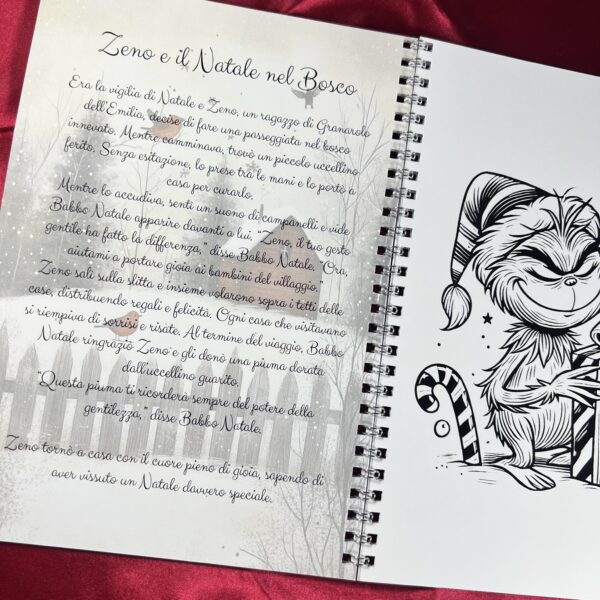 Zeno e il Natale nel Bosco
Era la vigilia di Natale e Zeno, un ragazzo di Granarolo
dell'Emilia, decise di fare una passeggiata nel bosco
innevato. Mentre camminava, trovò un piccolo uccellino
ferito. Senza esitazione, lo prese tra le mani e lo portò a
casa per curarlo.
Mentre lo accudiva, sentì un suono di campanelli e vide
Babbo Natale apparire davanti a lui. "Zeno, il tuo gesto
gentile ha fatto la differenza," disse Babbo Natale. "Ora,
aiutami a portare gioia ai bambini del villaggio."
Zeno salì sulla slitta e insieme volarono sopra i tetti delle
case, distribuendo regali e felicità. Ogni casa che visitavano
si riempiva di sorrisi e risate. Al termine del viaggio, Babbo
Natale ringraziò Zeno e gli donò una piuma dorata
dall'uccellino guarito.
"Questa piuma ti ricorderà sempre del potere della
gentilezza," disse Babbo Natale.
Zeno tornò a casa con il cuore pieno di gioia, sapendo di
aver vissuto un Natale davvero speciale.